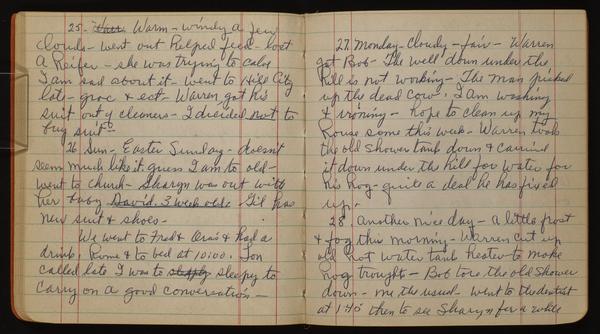 25. Warm - windy a few
clouds - went out helped feed - lost
a heifer - she was trying to calve
I am sad about it - went to Hill City
late - groc & ect - Warren got his
suit out of cleaners - I decided not to
buy suit -
26 Sun - Easter Sunday - doesnt
seem much like it guess I am to old -
went to church - Sharyn was out with
her & baby David. 3 week olde
new suit & shoes -
We went to Fred & Ora's & had a
drink. Home & to bed at 10:00. Jon
called late I was to sleepy to
carry on a good conversation -
27. Monday - Cloudy - fair - Warren
got Bob - The well down under the
hill is not working - The man picked
up the dead cow. I am washing
& ironing - hope to clean up my
house some this week - Warren took
the old shower tank down & carried
it down under the hill for water for
his hog - quite a deal he has fixed
up -
28. Another nice day - a little frost
& fog this morning - Warren cut up
old hot water tank heater to make
hog troughs - Bob tore the old shower
down - me the usual - went to the dentist
at 1:45 then to see Sharyn for a while